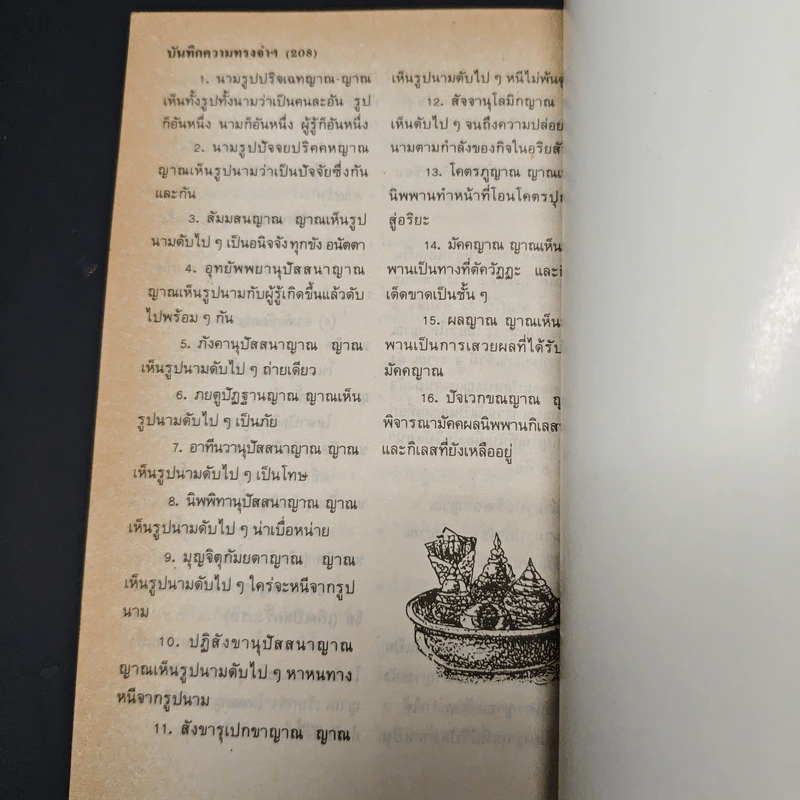 บันทึกความทรงจำฯ (208)
1. นามรูปปริจเฉทญาณ-ญาณ
เห็นทั้งรูปทั้งนามว่าเป็นคนละอัน รูป
ก็อันหนึ่ง นามก็อันหนึ่ง ผู้รู้ก็อันหนึ่ง
2. นามรูปปัจจยปริคคหญาณ
ญาณเห็นรูปนามว่าเป็นปัจจัยซึ่งกัน
และกัน
3. สัมมสนญาณ ญาณเห็นรูป
นามดับไป ๆ เป็นอนิจจังทุกขัง อนัตตา
4. อุทยัพพยานุปัสสนาญาณ
ญาณเห็นรูปนามกับผู้รู้เกิดขึ้นแล้วดับ
ไปพร้อม ๆ กัน
5. ภังคานุปัสสนาญาณ ญาณ
เห็นรูปนามดับไป ๆ ถ่ายเดียว
6. ภยตูปัฏฐานญาณ ญาณเห็น
รูปนามดับไป ๆ เป็นภัย
7. อาทีนวานุปัสสนาญาณ ญาณ
เห็นรูปนามดับไป ๆ เป็นโทษ
8. นิพพิทานุปัสสนาญาณ ญาณ
เห็นรูปนามดับไป ๆ น่าเบื่อหน่าย
9. มุญจิตุกัมยตาญาณ ญาณ
เห็นรูปนามดับไป ๆ ใคร่จะหนีจากรูป
นาม
10. ปฏิสังขานุปัสสนาญาณ
ญาณเห็นรูปนามดับไป ๆ หาหนทาง
หนีจากรูปนาม
11. สังขารุเปกขาญาณ ญาณ
เห็นรูปนามดับไป ๆ หนีไม่พ้น
12. สัจจานุโลมิกญาณ
เห็นดับไป ๆ จนถึงความปล่อย
นามตามกำลังของกิจในอริยสั
13. โคตรภูญาณ ญาณ
นิพพานทำหน้าที่โอนโคตรปุ
สู่อริยะ
14. มัคคญาณ ญาณเห็น
พานเป็นทางที่ตัดวัฏฏะ และ
เด็ดขาดเป็นชั้น ๆ
15. ผลญาณ ญาณเห็น
พานเป็นการเสวยผลที่ได้รับ
มัคคญาณ
16. ปัจเวกขณญาณ
พิจารณามัคคผลนิพพานกิเลส
และกิเลสที่ยังเหลืออยู่